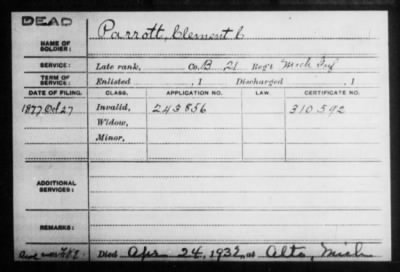 DEAD
NAME OF SOLDIER: Parrott, Clement C
SERVICE: Late rank, Co. B 21 Reg't Mich Inf
TERM OF SERVICE: Enlisted , 1 Discharged , 1
DATE OF FILING. CLASS. APPLICATION NO. LAW. CERTIFICATE NO.
1877 Oct 27 Invalid, 243856 310592
Widow,
Minor,
ADDITIONAL SERVICES:
REMARKS:
Died Apr 24, 1932 at Alto, Mich